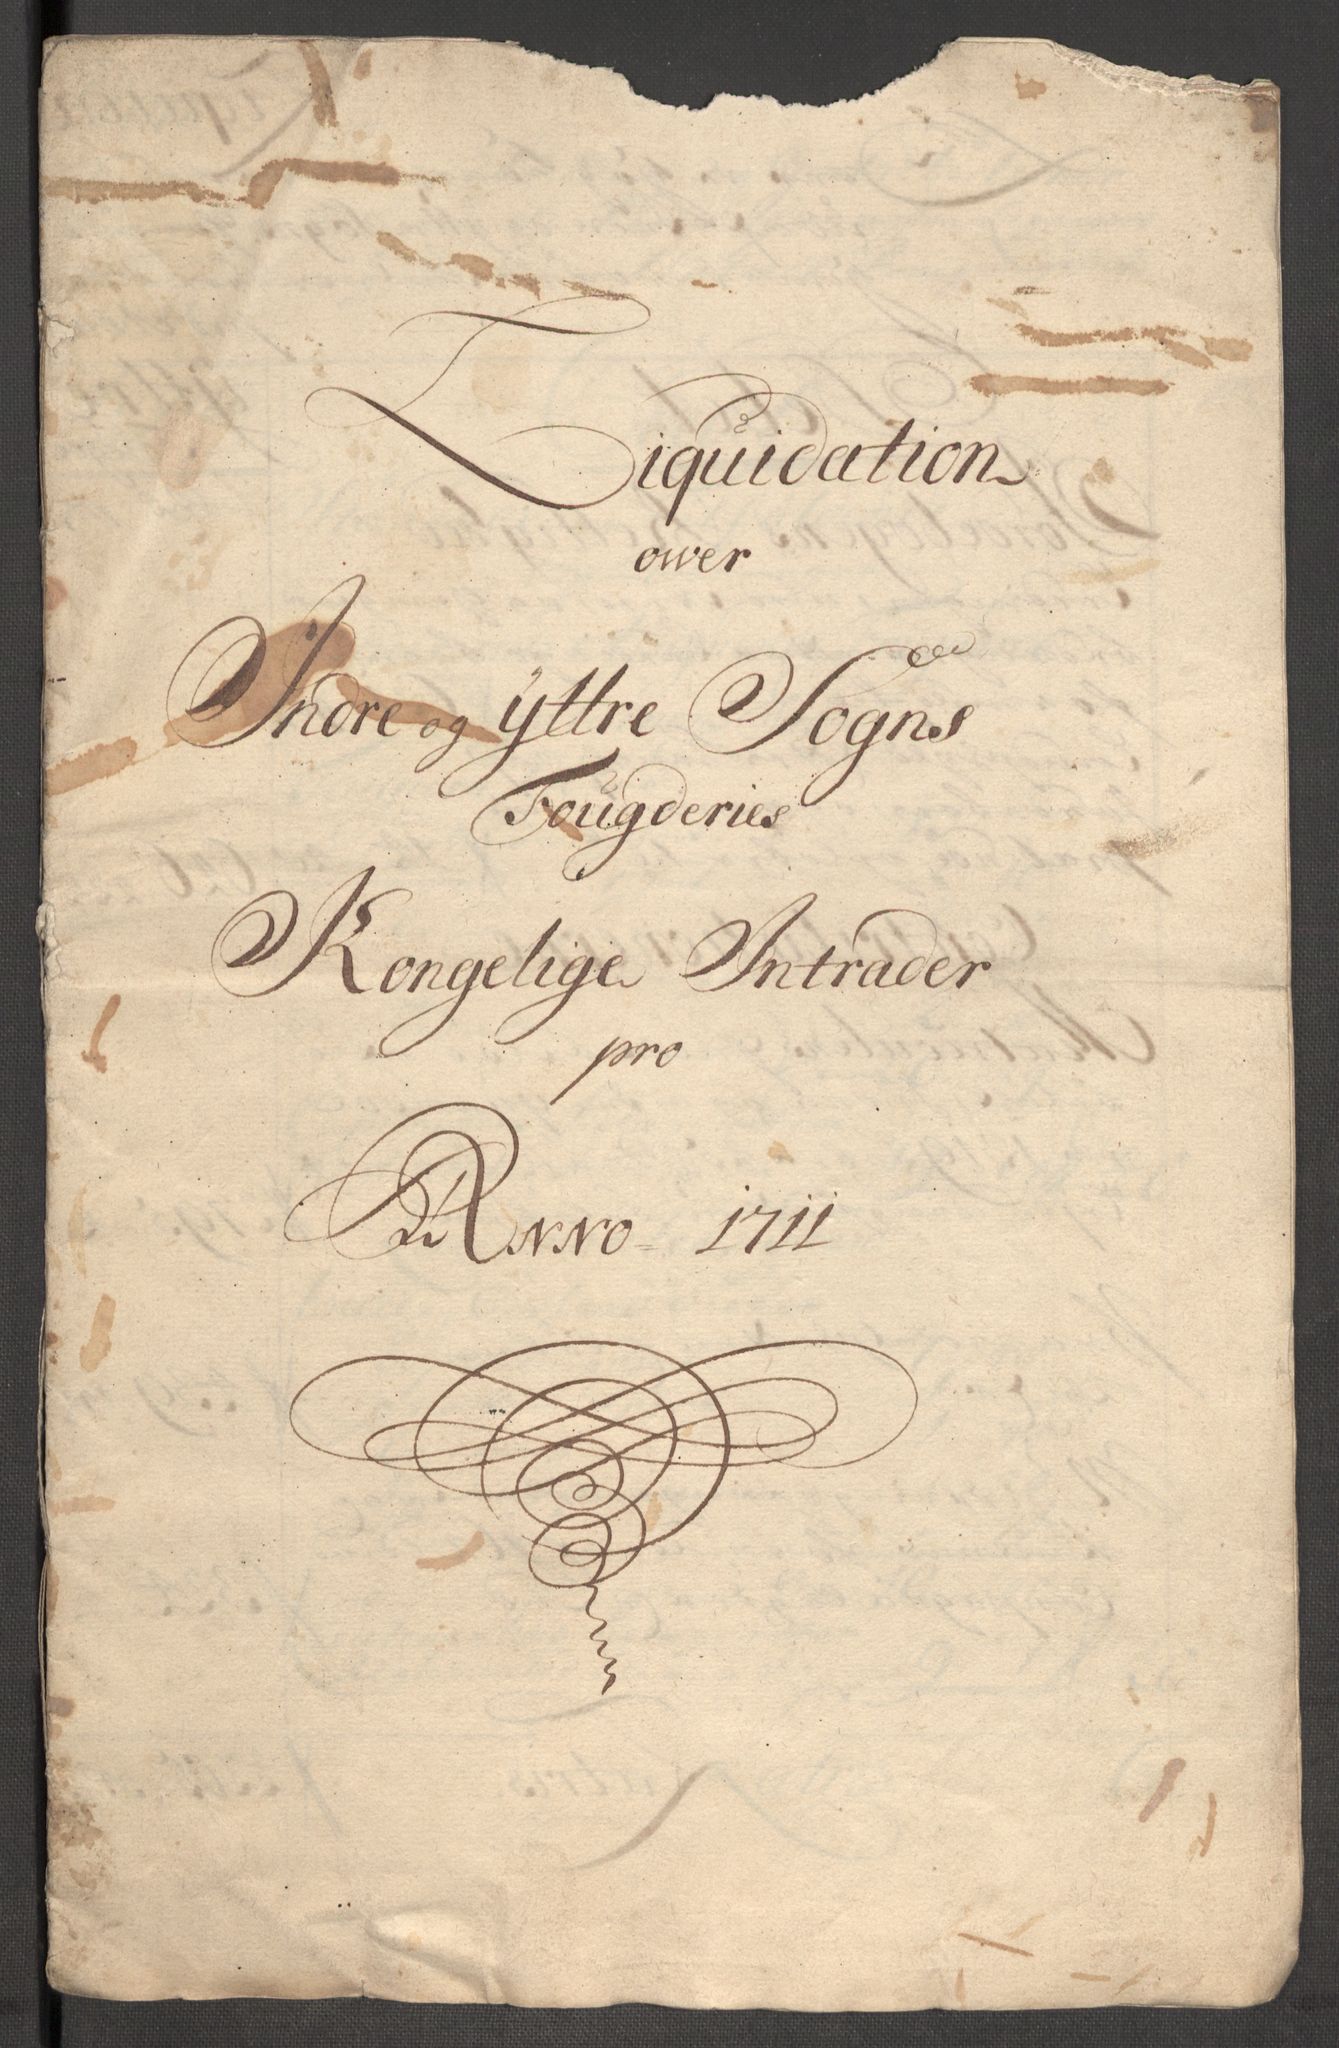 Liquidation
ower
Indre og ÿttre Sogns
Fougderies
Kongelige Intrader
pro
Anno 1711